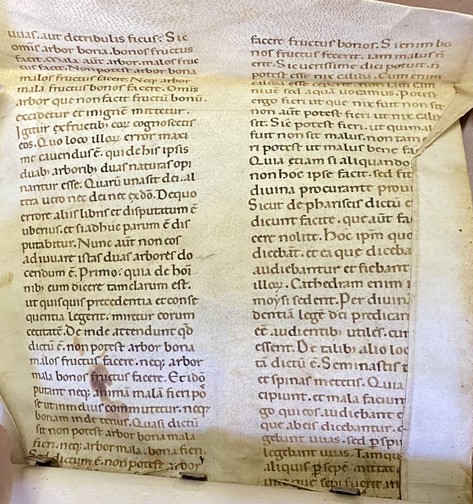 uuas. aut detribulis ficus? Sic
omīs arbor bona. bonos fructus
facit. Mala aūt arbor. malos fruc
tus facit. Non potest arbor bona
malos fructus facere. Neq; arbor
mala fructus bonos facere. Omīs
arbor que nonfacit fructū bonū.
excidetur et inignē mittetur.
Igitur exfructib; eoꝝ cognoscetis
eos. Quo loco illoꝝ error maxi
me cauenduſ ē. qui de his ipsis
duab; arborib; duas naturas opi
nantur esse. Quarū unasit dei. al
tera uero nec dei nec exdō. Dequo
errore aliis libris et disputatum ē
uberius. et siadhuc parum ē dis
putabitur. Nunc aūt non eos
adiuuare istas duas arbores do
cendum ē. Primo. quia de homi
nib; eum dicere tamclarum est.
ut quisquis precedentia et conse
quentia legerit. miretur eorum
cecitatē. Deinde attendunt qđ
dictū ē. non potest arbor bona
malos fructus facere. neq; arbor
mala bonos fructus facere. Et idō
putant neq; animā malā fieri posse
ut inmelius commutetur. neq;
bonam indeterius. Quasi dictū
sit non potest arbor bona mala
fieri. neq; arbor mala. bona fieri.
Sed dictum ē. non potest arbor
facere fructus bonos. Si enim bo
nos fructus fecerit. iam malus n̄
erit. Sic uerissime dici potest. n̄
potest esse nix calida. Cum enim
calida esse ceperit. non iam eam
niuē sed aquā uocamus. Potest
ergo fieri ut que nix fuit non sit
non aūt potest fieri ut nix calida
sit. Sic potest fieri. ut quimalus
fuit non sit malus. non tamen
ri potest ut malus bene fac
Quia etiam si aliquando
non hoc ipse facit. sed fit
diuina procurante proui
Sicut de phariseis dictū e
dicunt facite. que aūt fa
cere nolite. Hoc ipm quo
dicebāt. et ea que diceba
audiebantur et fiebant
illoꝝ. Cathedram enim i
moysi sedent. Per diuin
dentiā legē dei predican
cē. audientib; utiles. cum
essent. De talib; alio loc
tā dictū ē. Seminastis t
et spinas metetis. Quia
cipiunt. et mala faciun
go qui eos audiebant e
que abeis dicebantur.
gebant uuas. sed p̄ spin
legebant uuas. Tamqua
aliquis p̄ sepē mittat
uua que sepi fuerit in